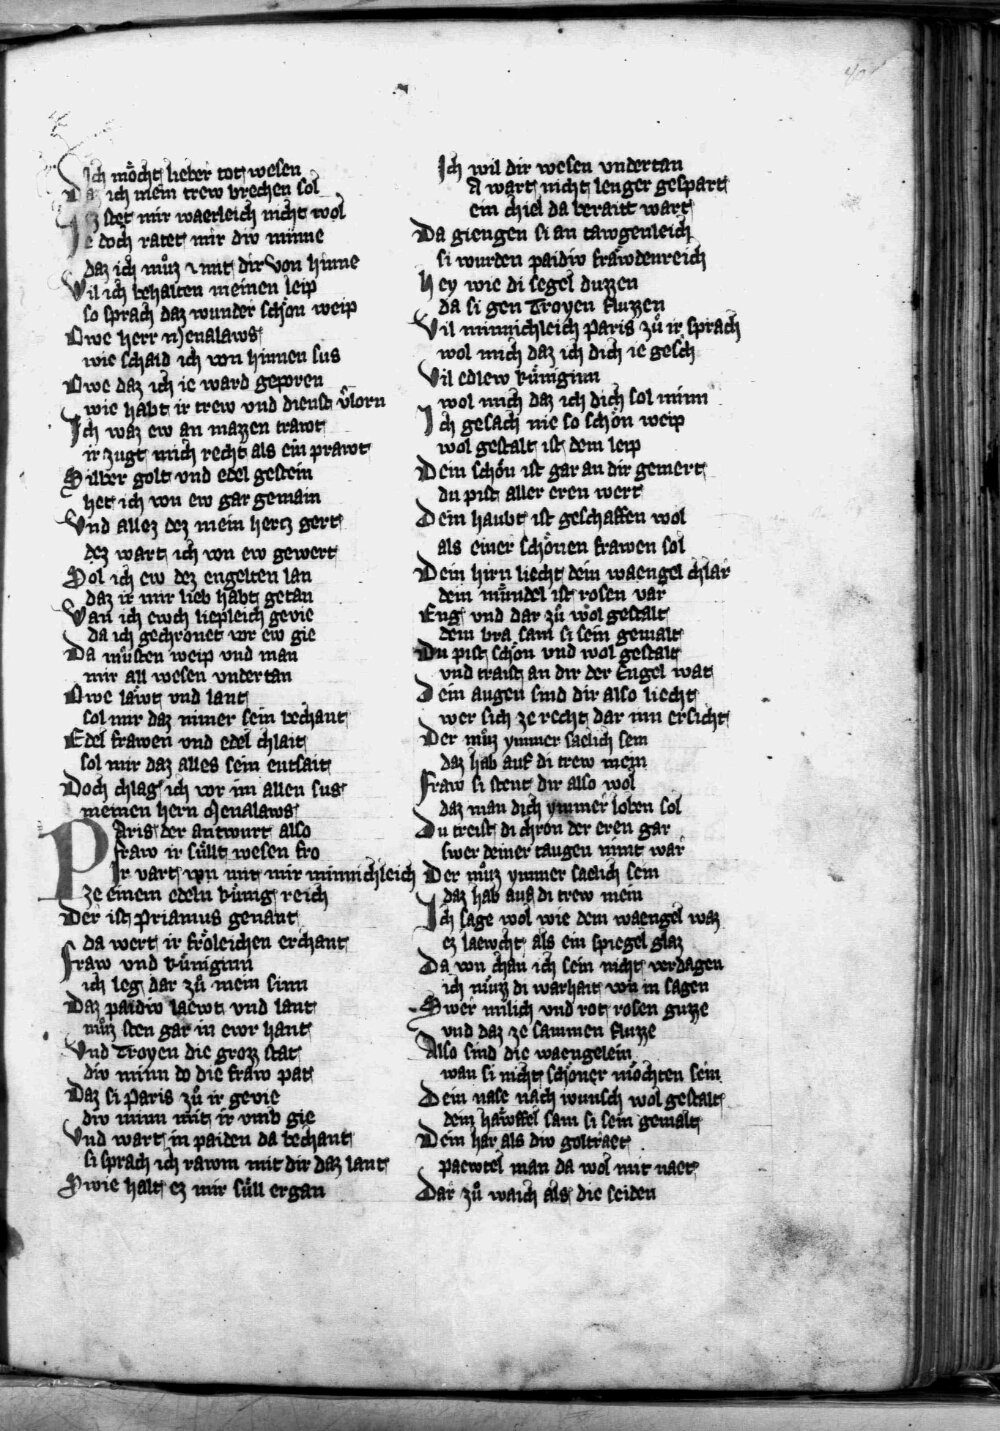 Ich moͤcht lieber tot wesen
Daz ich mein trew brechen sol
Ez stet mir waerleich nicht wol
Je doch ratet mir div minne
daz ich muͤz mit dir von hinne
Wil ich behalten meinen leip
so sprach daz wunder schoͤn weip
Owe herr Menalaws
wie schaid ich von hinnen sus
Owe daz ich ie ward geporen
wie habt ir trew vnd dienst v̂lorn
Ich waz ew an mazzen trawt
ir zugt mich recht als ein prawt
Silber golt vnd edel gestein
het ich von ew gar gemain
Vnd allez dez mein hertz gert
dez wart ich von ew gewert
Sol ich ew dez engelten lan
daz ir mir lieb habt getan
Wan ich ewch liepleich gevie
da ich gechronet vor ew gie
Da muͤsten weip vnd man
mir all wesen vndertan
Owe laͤwt vnd lant
sol mir daz nimer sein bechant
Edel frawen vnd edel chlait
sol mir daz alles sein entsait
Doch chlag ich vor im allen sus
meinen hern Menalaws
Paris der antwurt also
fraw ir suͤllt wesen fro
Ir vart von mit mir minnichleich
ze einem edeln kuͤnig reich
Der ist Priamus genant
da wert ir froͤleichen erchant
Fraw vnd kuͤniginn
ich leg dar zuͤ mein sinn
Daz paidiv laewt vnd lant
muͤz sten gar in ewr hant
Vnd Troyen die grozz stat
div minn do die fraw pat
Daz si Paris zuͤ ir gevie
div minn mit ir vmb gie
Vnd wart in paiden da bechant
si sprach ich rawm mit dir daz lant
Swie halt ez mir suͤll ergan
Ich wil dir wesen vndertan
Da wart nicht lenger gespart
ein chiel da beraitt wart
Da giengen si an tawgenleich
si wurden paidiv fraͤwdenreich
Hey wie di segel duzzen
da si gen Troyen fluzzen
Vil minnichleich Paris zuͤ ir sprach
wol mich daz ich dich ie gesch
Vil edlew kuͤniginn
wol mich daz ich dich sol minn
Ich gesach nie so schoͤn weip
wol gestalt ist dein leip
Dein schoͤn ist gar an dir gemert
du pist aller eren wert
Dein haubt ist geschaffen wol
als einer schoͤnen frawen sol
Dein hirn liecht dein waengel chlar
dein muͤndel ist rosen var
Eng vnd dar zuͤ wol gestalt
dein bra sam si sein gemalt
Du pist schoͤn vnd wol gestalt
vnd traist an dir der Engel wat
Dein augen sind dir also liecht
wer sich ze recht dar inn ersicht
Der muͤz ymmer saelich sein
daz hab auf di trew mein
Fraw si stent dir also wol
daz man dich ymmer loben sol
Du treist di chron der eren gar
swer deiner taugen nimt war
Der muͤz ymmer saelich sein
daz hab auf di trew mein
Ich sage wol wie dein waengel waz
ez laewcht als ein spiegel glaz
Da von chan ich sein nicht verdagen
ich muͤz di warhait von in sagen
Swer milich vnd rot rosen guzze
vnd daz ze sammen fluzze
Also sind die waengelein
wan si nicht schoͤner moͤchten sein
Dein nase nach wunsch wol gestalt
dein haͤwffel sam si sein gemalt
Dein har als div goltraet
paewtel man da wol mit naet
Dar zuͤ waich als die seiden